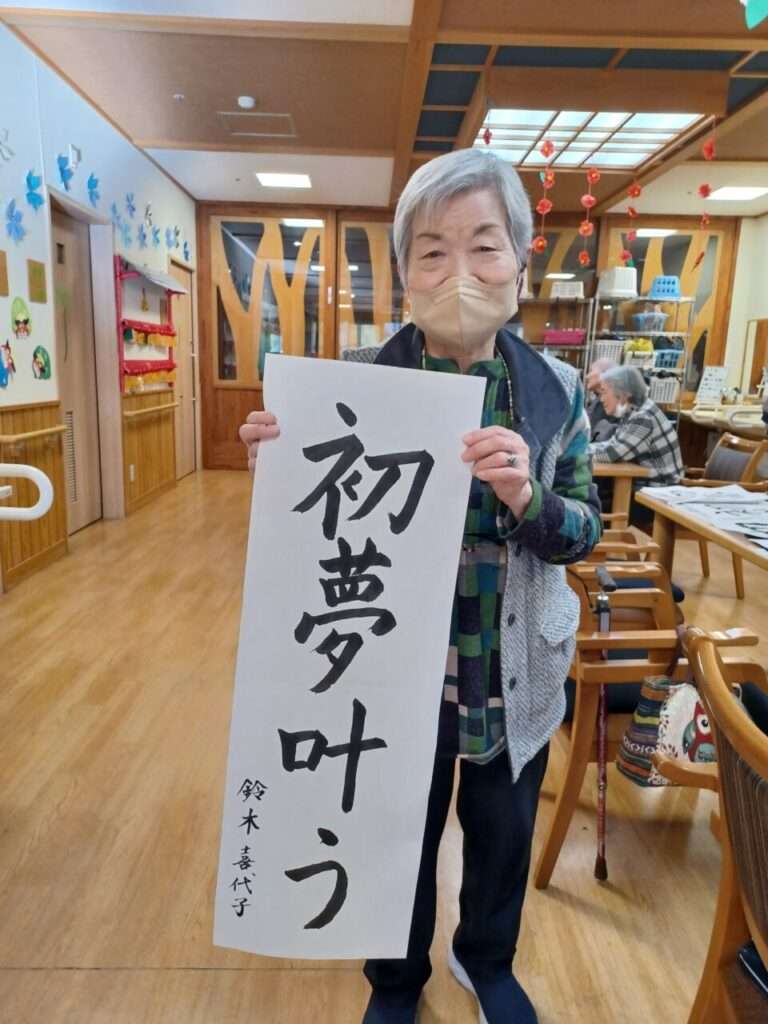 初夢叶う
鈴木喜代子